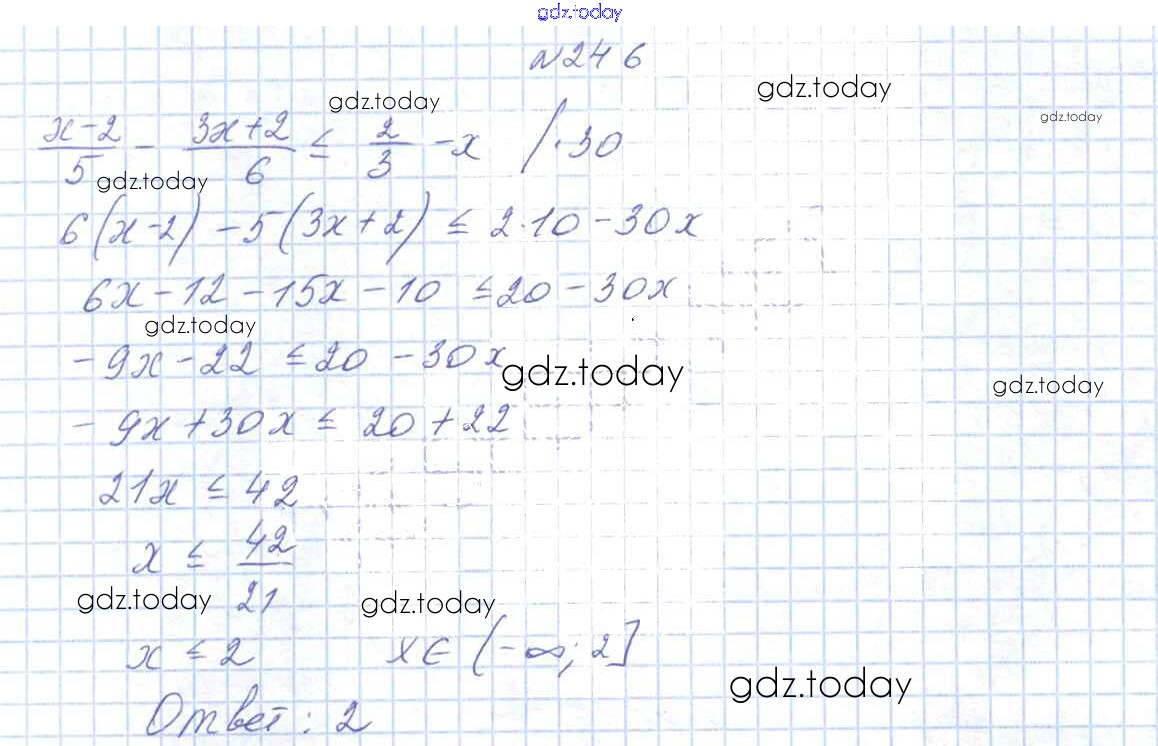 gdz.today
№246
gdz.today
gdz.today
gdz.today
x-2/5 - 3x+2/6 ≤ 2/3 -x /·30
gdz.today
6(x-2)-5(3x+2) ≤ 2·10-30x
6x-12-15x-10 ≤20-30x
gdz.today
-9x-22 ≤20-30x
gdz.today
gdz.today
-9x+30x ≤ 20+22
21x ≤ 42
x ≤ 42/21
gdz.today
gdz.today
x ≤ 2 x∈(-∞; 2]
gdz.today
Ответ: 2